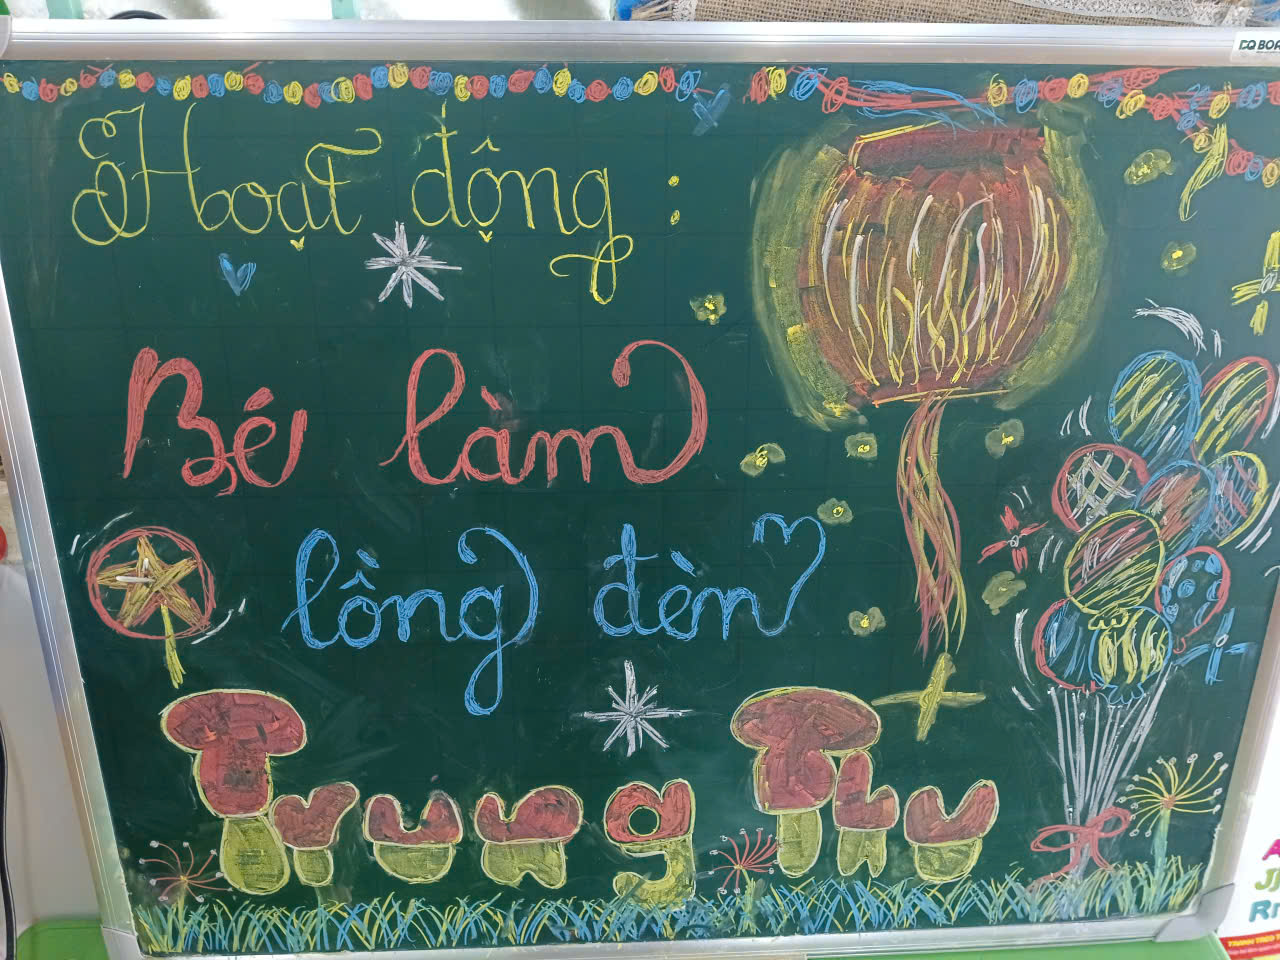 Hoạt động :
Bé làm
lồng đèn
Trung Thu